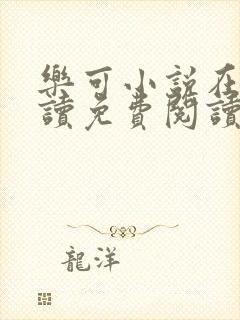 樂可小說在
讀免費閱讀
龍洋